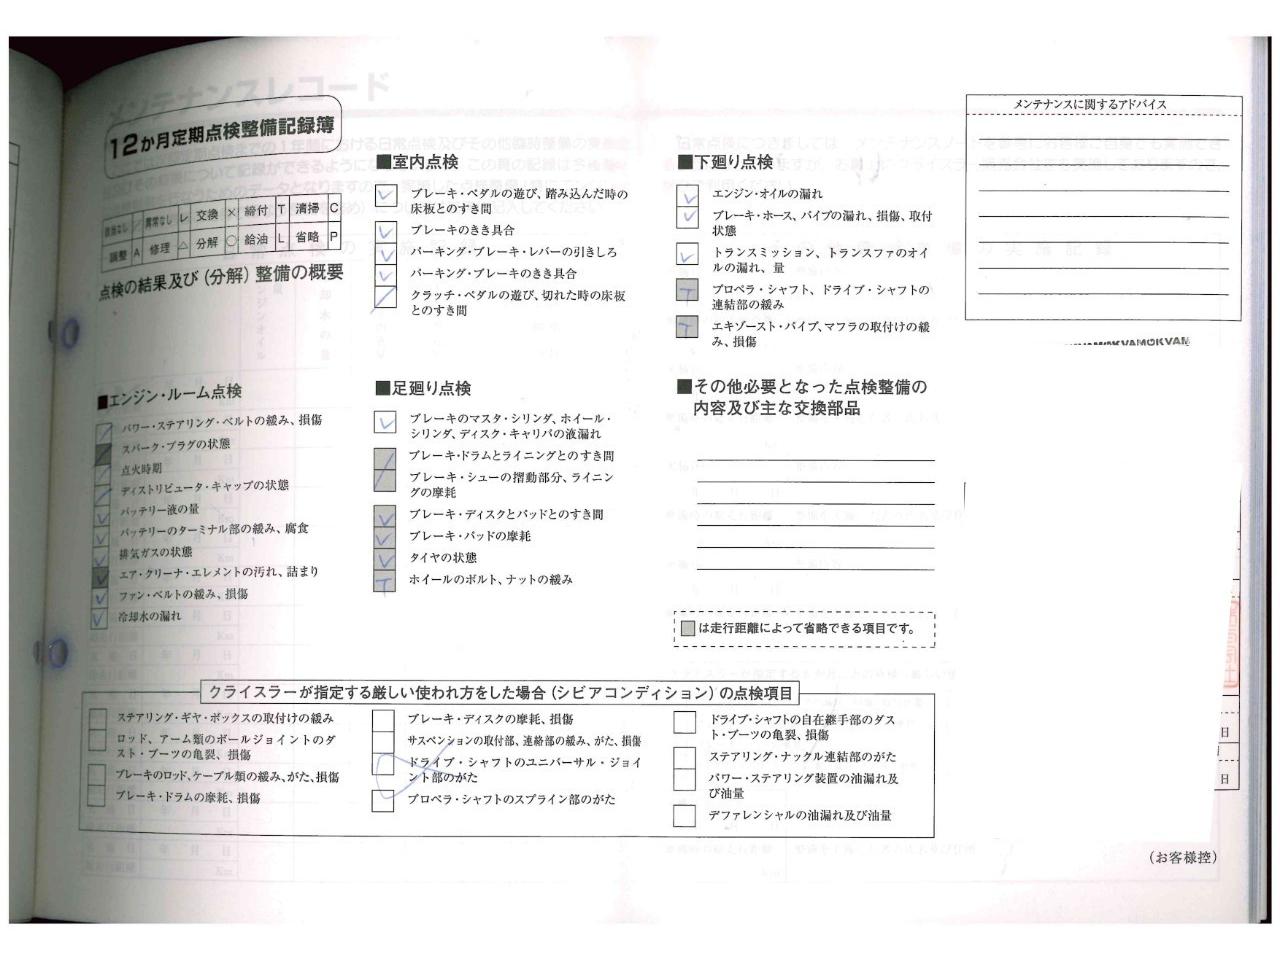 12か月定期点検整備記録簿
該当なし / 異常なし レ 交換 × 締付 T 清掃 C
調整 A 修理 △ 分解 ○ 給油 L 省略 P
点検の結果及び(分解)整備の概要
■エンジン・ルーム点検
パワー・ステアリング・ベルトの緩み、損傷
スパーク・プラグの状態
点火時期
ディストリビュータ・キャップの状態
バッテリー液の量
バッテリーのターミナル部の緩み、腐食
排気ガスの状態
エア・クリーナ・エレメントの汚れ、詰まり
ファン・ベルトの緩み、損傷
冷却水の漏れ
■室内点検
ブレーキ・ペダルの遊び、踏み込んだ時の
床板とのすき間
ブレーキのきき具合
パーキング・ブレーキ・レバーの引きしろ
パーキング・ブレーキのきき具合
クラッチ・ペダルの遊び、切れた時の床板
とのすき間
■足廻り点検
ブレーキのマスタ・シリンダ、ホイール・
シリンダ、ディスク・キャリパの液漏れ
ブレーキ・ドラムとライニングとのすき間
ブレーキ・シューの摺動部分、ライニン
グの摩耗
ブレーキ・ディスクとパッドとのすき間
ブレーキ・パッドの摩耗
タイヤの状態
ホイールのボルト、ナットの緩み
■下廻り点検
エンジン・オイルの漏れ
ブレーキ・ホース、パイプの漏れ、損傷、取付
状態
トランスミッション、トランスファのオイ
ルの漏れ、量
プロペラ・シャフト、ドライブ・シャフトの
連結部の緩み
エキゾースト・パイプ、マフラの取付けの緩
み、損傷
■その他必要となった点検整備の
内容及び主な交換部品
は走行距離によって省略できる項目です。
メンテナンスに関するアドバイス
クライスラーが指定する厳しい使われ方をした場合(シビアコンディション)の点検項目
ステアリング・ギヤ・ボックスの取付けの緩み
ロッド、アーム類のボールジョイントのダ
スト・ブーツの亀裂、損傷
ブレーキのロッド、ケーブル類の緩み、がた、損傷
ブレーキ・ドラムの摩耗、損傷
ブレーキ・ディスクの摩耗、損傷
サスペンションの取付部、連絡部の緩み、がた、損傷
ドライブ・シャフトのユニバーサル・ジョイ
ント部のがた
プロペラ・シャフトのスプライン部のがた
ドライブ・シャフトの自在継手部のダス
ト・ブーツの亀裂、損傷
ステアリング・ナックル連結部のがた
パワー・ステアリング装置の油漏れ及
び油量
デファレンシャルの油漏れ及び油量
日
日
(お客様控)